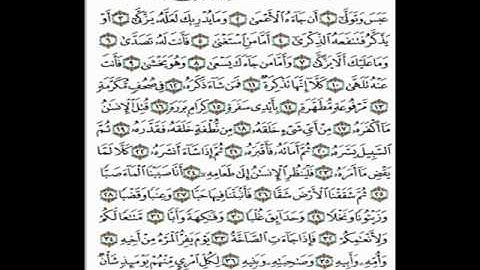 عَبَسَ وَتَوَلَّىٰٓ ١ أَن جَآءَهُ ٱلْأَعْمَىٰ ٢ وَمَا يُدْرِيكَ لَعَلَّهُۥ يَزَّكَّىٰٓ ٣ أَوْ
يَذَّكَّرُ فَتَنفَعَهُ ٱلذِّكْرَىٰٓ ٤ أَمَّا مَنِ ٱسْتَغْنَىٰ ٥ فَأَنتَ لَهُۥ تَصَدَّىٰ ٦
وَمَا عَلَيْكَ أَلَّا يَزَّكَّىٰ ٧ وَأَمَّا مَن جَآءَكَ يَسْعَىٰ ٨ وَهُوَ يَخْشَىٰ ٩ فَأَنتَ
عَنْهُ تَلَهَّىٰ ١٠ كَلَّآ إِنَّهَا تَذْكِرَةٌ ١١ فَمَن شَآءَ ذَكَرَهُۥ ١٢ فِى صُحُفٍ مُّكَرَّمَةٍ
١٣ مَّرْفُوعَةٍ مُّطَهَّرَةٍۭ ١٤ بِأَيْدِى سَفَرَةٍ ١٥ كِرَامٍۭ بَرَرَةٍ ١٦ قُتِلَ ٱلْإِنسَٰنُ
مَآ أَكْفَرَهُۥ ١٧ مِنْ أَىِّ شَىْءٍ خَلَقَهُۥ ١٨ مِن نُّطْفَةٍ خَلَقَهُۥ فَقَدَّرَهُۥ ١٩ ثُمَّ
ٱلسَّبِيلَ يَسَّرَهُۥ ٢٠ ثُمَّ أَمَاتَهُۥ فَأَقْبَرَهُۥ ٢١ ثُمَّ إِذَا شَآءَ أَنشَرَهُۥ ٢٢ كَلَّا لَمَّا
يَقْضِ مَآ أَمَرَهُۥ ٢٣ فَلْيَنظُرِ ٱلْإِنسَٰنُ إِلَىٰ طَعَامِهِۦٓ ٢٤ أَنَّا صَبَبْنَا ٱلْمَآءَ صَبًّا
٢٥ ثُمَّ شَقَقْنَا ٱلْأَرْضَ شَقًّا ٢٦ فَأَنۢبَتْنَا فِيهَا حَبًّا ٢٧ وَعِنَبًا وَقَضْبًا ٢٨
وَزَيْتُونًا وَنَخْلًا ٢٩ وَحَدَآئِقَ غُلْبًا ٣٠ وَفَٰكِهَةً وَأَبًّا ٣١ مَّتَٰعًا لَّكُمْ
وَلِأَنْعَٰمِكُمْ ٣٢ فَإِذَا جَآءَتِ ٱلصَّآخَّةُ ٣٣ يَوْمَ يَفِرُّ ٱلْمَرْءُ مِنْ أَخِيهِ
٣٤ وَأُمِّهِۦ وَأَبِيهِ ٣٥ وَصَٰحِبَتِهِۦ وَبَنِيهِ ٣٦ لِكُلِّ ٱمْرِئٍ مِّنْهُمْ يَوْمَئِذٍ شَأْنٌ